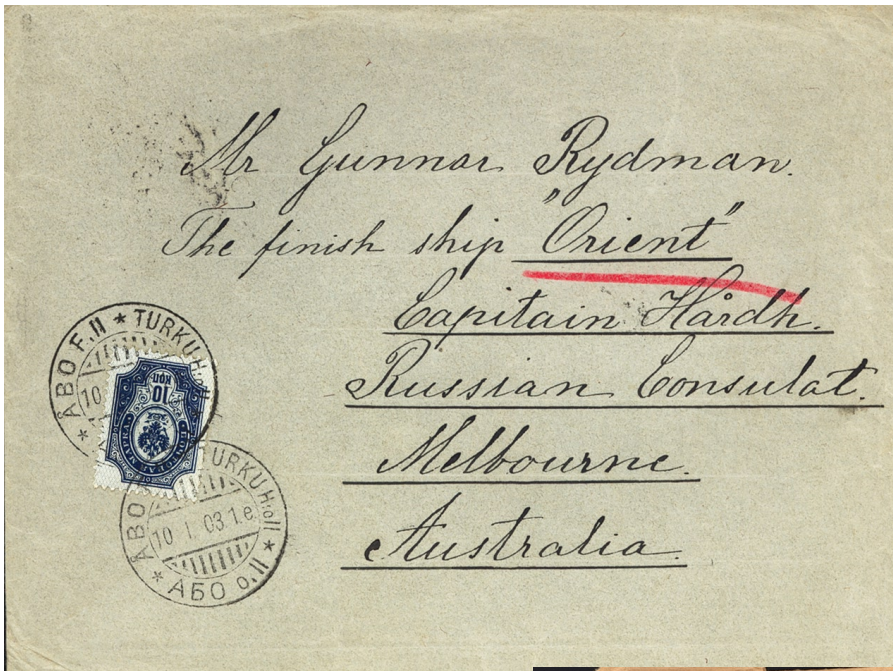 Mr Gunnar Rydman.
The finish ship "Orient"
Capitain Hårdh.
Russian Consulat.
Melbourne.
Australia.
ÅBO F.II * TURKU H:oII *
10
10 КОП
ÅBO TURKU H:oII * АБО о.II *
10 I. 03 1.e.